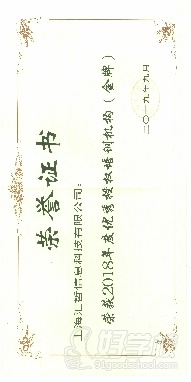 荣誉证书
上海汇哲信息科技有限公司：
荣获2018年度优秀授权培训机构（金牌）
二〇一九年九月
好学校